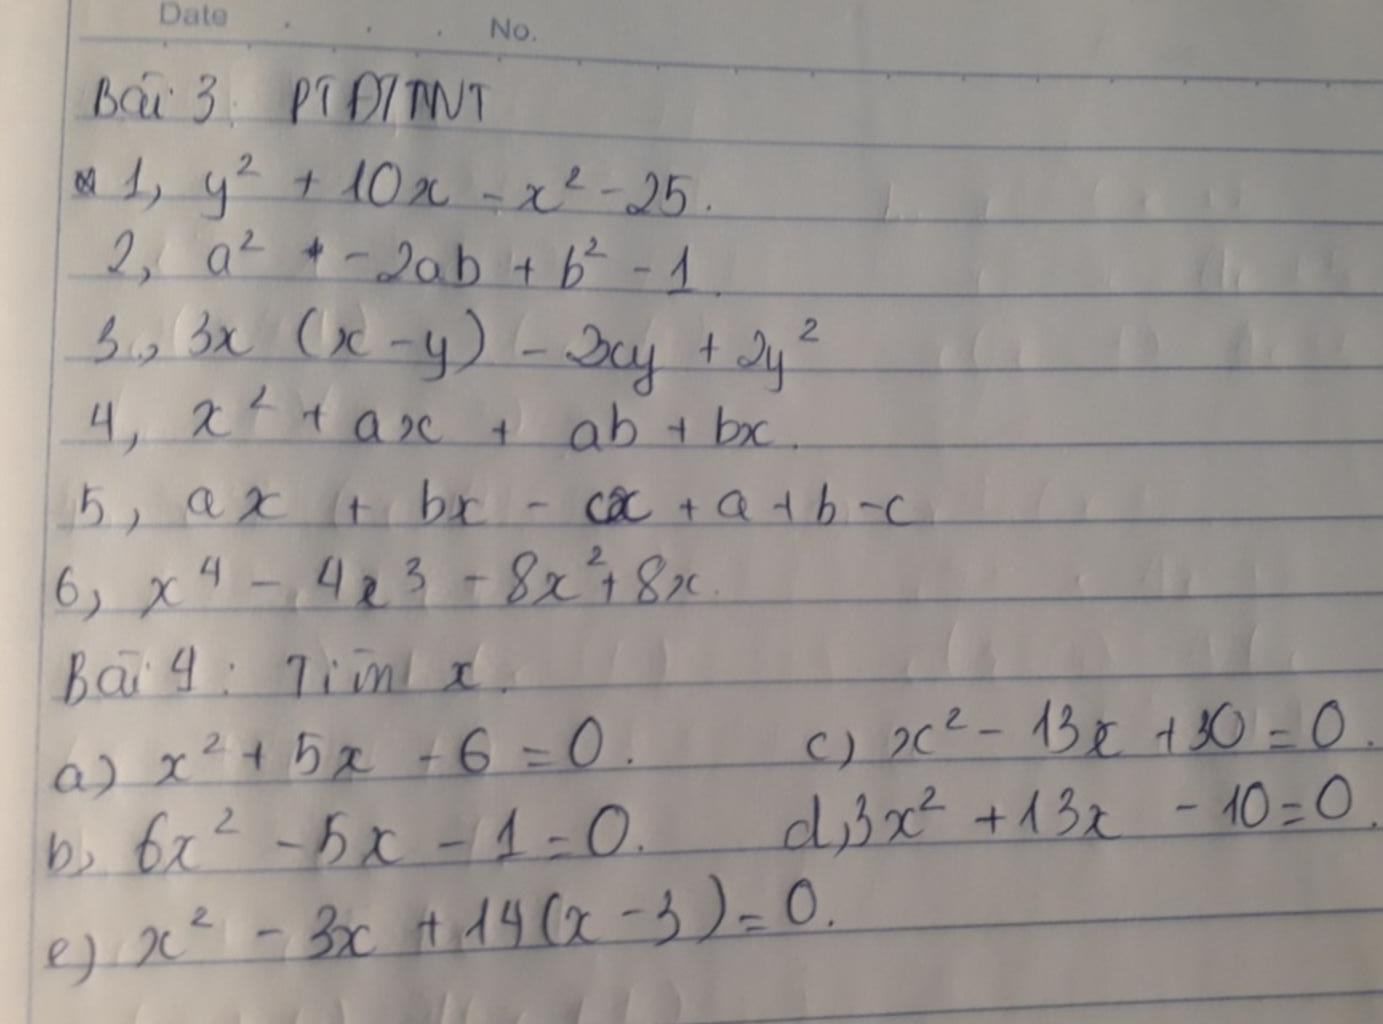 Date . . . No.
Bài 3: PTĐTTNT
1, y² + 10x - x² - 25.
2, a² - 2ab + b² - 1
3, 3x (x - y) - 2xy + 2y²
4, x² + ax + ab + bx.
5, ax + bx - cx + a + b - c
6, x⁴ - 4x³ - 8x² + 8x.
Bài 4: Tìm x.
a) x² + 5x - 6 = 0. c) x² - 13x + 30 = 0.
b, 6x² - 5x - 1 = 0. d, 3x² + 13x - 10 = 0.
e) x² - 3x + 14(x - 3) = 0.